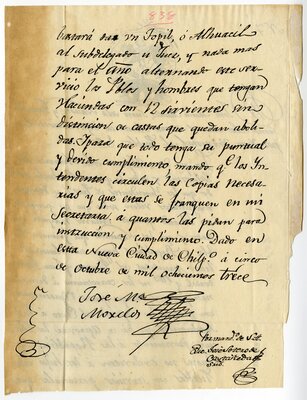 838
bastará su vn Topil, ó Alhuacil
al Subdelegado ú Juez, y nada mas
para el año alternando este ser-
vicio los Pblos y hombres que tengan
Haciendas con 12 sirvientes sin
distincion de castas que quedan aboli-
das. I para que todo tenga su puntual
y devido cumplimiento, mando q.e los Yn-
tendentes circulen las Copias necesa-
rias y que estas se franqueen en mi
Secretaria á quantos las pidan para
instruccion y cumplimiento. Dado en
esta Nueva Ciudad de Chilp.o á cinco
de octubre de mil ochocientos trece
José Ma.
Morelos
Por mand.o de S. A.
Castañeda